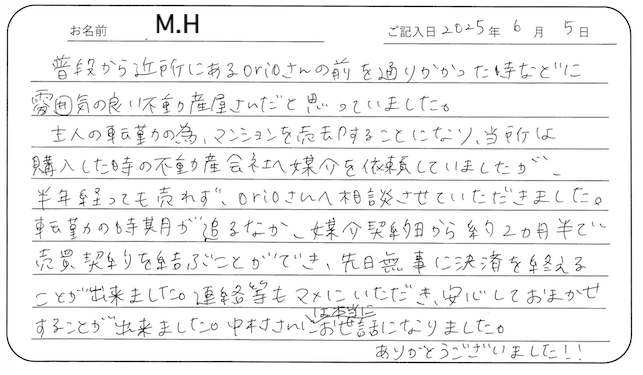 お名前 M.H ご記入日 2025年 6月 5日
普段から近所にあるorioさんの前を通りかかった時などに
雰囲気の良い不動産屋さんだと思っていました。
主人の転勤の為、マンションを売却することになり、当所は
購入した時の不動産会社へ媒介を依頼していましたが、
半年経っても売れず、orioさんへ相談させていただきました。
転勤の時期が迫るなか、媒介契約日から約2カ月半で
売買契約を結ぶことができ、先日無事に決済を終える
ことが出来ました。連絡等もマメにいただき、安心しておまかせ
することが出来ました。中村さんには本当にお世話になりました。
ありがとうございました!!